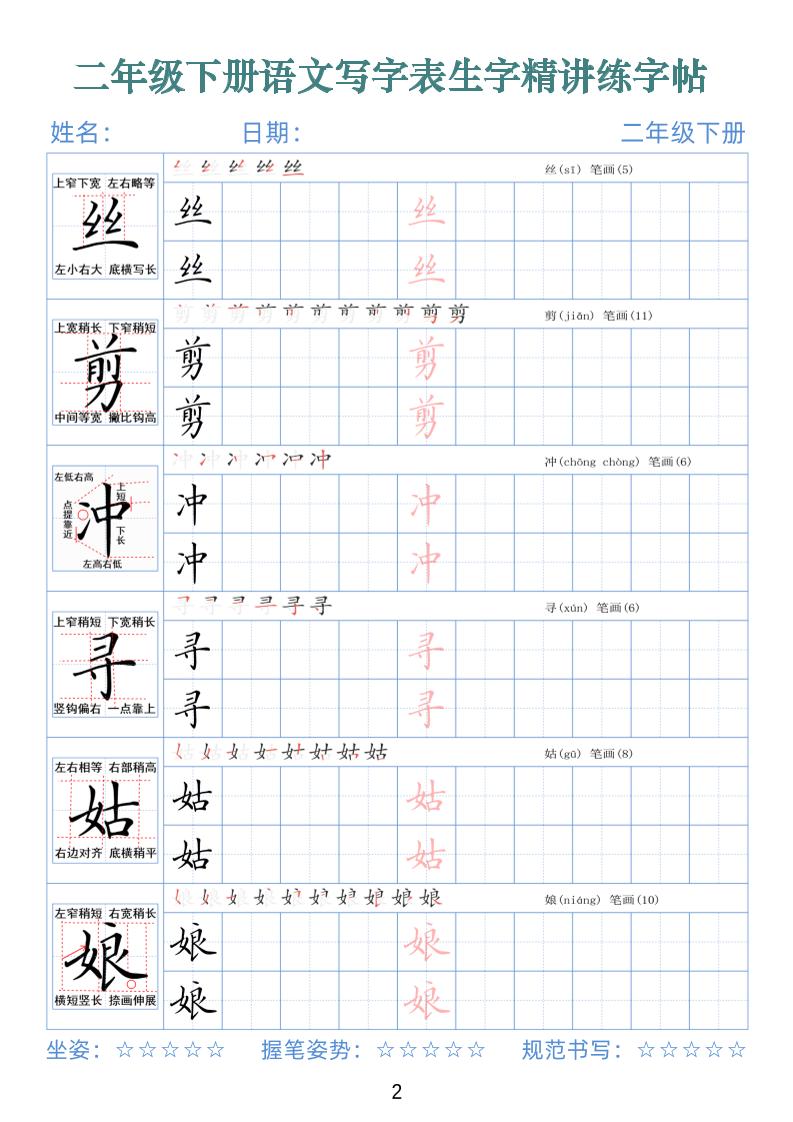 二年级下册语文写字表生字精讲练字帖
姓名： 日期： 二年级下册
丝(sī) 笔画(5)
上窄下宽 左右略等
丝
左小右大 底横写长
丝 丝
丝 丝
剪(jiǎn) 笔画(11)
上宽稍长 下窄稍短
剪
中间等宽 撇比钩高
剪 剪
剪 剪
冲(chōng chòng) 笔画(6)
左低右高
上短
点提靠近
冲
下长
左高右低
冲 冲
冲 冲
寻(xún) 笔画(6)
上窄稍短 下宽稍长
寻
竖钩偏右 一点靠上
寻 寻
寻 寻
姑(gū) 笔画(8)
左右相等 右部稍高
姑
右边对齐 底横稍平
姑 姑
姑 姑
娘(niáng) 笔画(10)
左窄稍短 右宽稍长
娘
横短竖长 捺画伸展
娘 娘
娘 娘
坐姿：☆☆☆☆☆ 握笔姿势：☆☆☆☆☆ 规范书写：☆☆☆☆☆
2